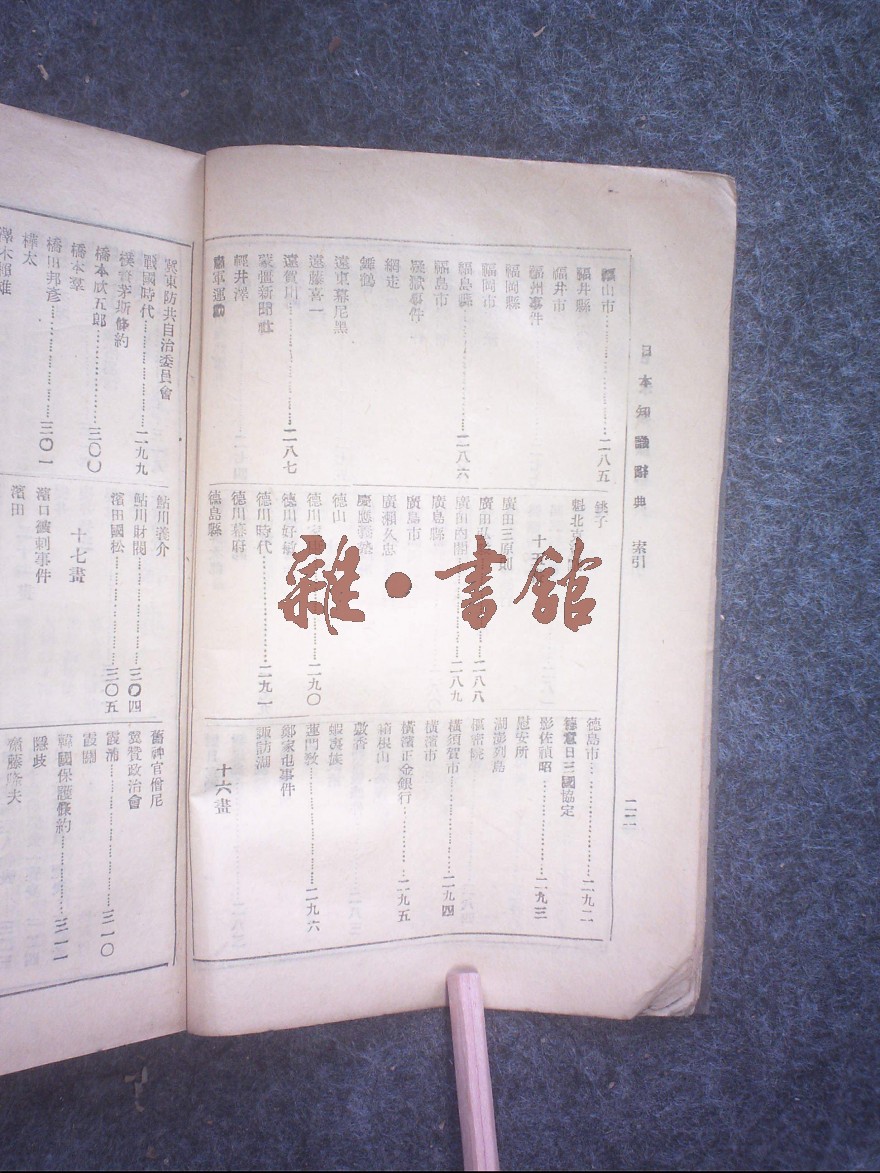 日本知識辭典 索引
二二
福山市……二八五
福井縣
福井市
福州事件
福岡縣
福岡市
福島縣……二八六
福島市
疑獄事件
網走
舞鶴
遠東幕尼黑
遠藤喜一
遠賀川……二八七
蒙疆新聞社
輕井澤
銚子
魁北
十五
廣田三原則
廣田……二八八
廣田內閣……二八九
廣島縣
廣島市
廣瀨久忠
慶應義塾
德山
德川家……二九〇
德川好敏
德川時代……二九一
德川幕府
德島縣
德島市……二九二
德意日三國協定
影佐禎昭……二九三
慰安所
澎湖列島
樞密院
橫須賀市……二九四
橫濱市
橫濱正金銀行……二九五
箱根山
敷香
蝦夷族
蓮門教……二九六
鄭家屯事件
諏訪湖
十六畫
冀東防共自治委員會
戰國時代……二九九
樸資茅斯條約
橋本欣五郎……三〇〇
橋本羣
橋田邦彥……三〇一
樺太
鮎川義介
鮎川財閥……三〇四
濱田國松……三〇五
十七畫
濱口被刺事件
濱田
舊神官僧尼
翼贊政治會
霞浦……三一〇
霞關
韓國保護條約……三一一
隱歧
齋藤隆夫
雜·書館